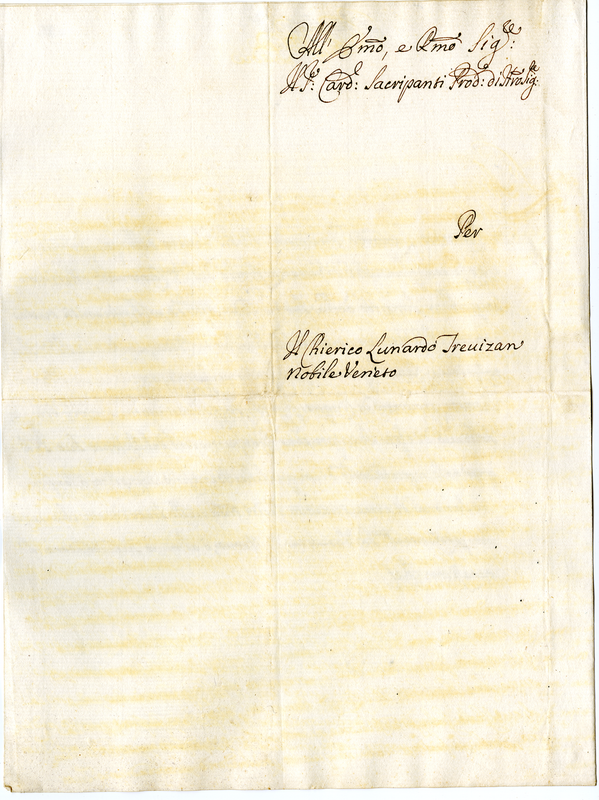 All' Emo, e Rmo Sig.re:
Il Sr: Card: Sacripanti Prod: di Nro Sig.re:
Per
Il Chierico Lunardo Treuizan
Nobile Veneto